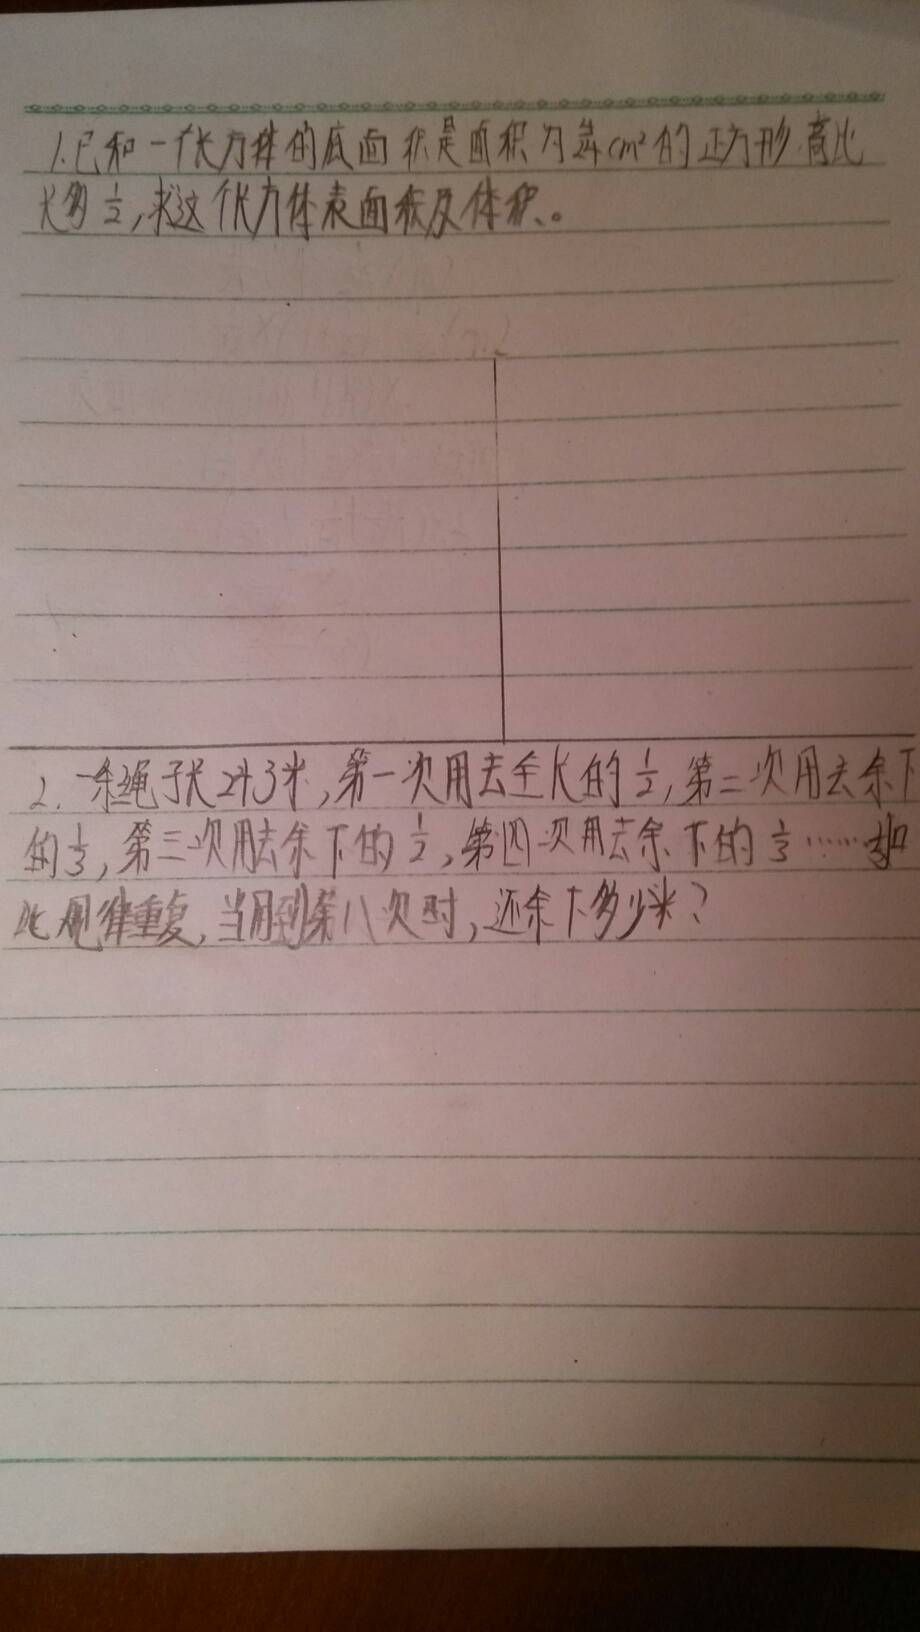 1.已知一个长方体的底面积是面积为 cm²的正方形.高比
长多1/2,求这个长方体表面积及体积。
2.一条绳子长243米,第一次用去全长的1/2,第二次用去余下
的1/3,第三次用去余下的1/2,第四次用去余下的1/3……如
此规律重复,当用到第八次时,还余下多少米?